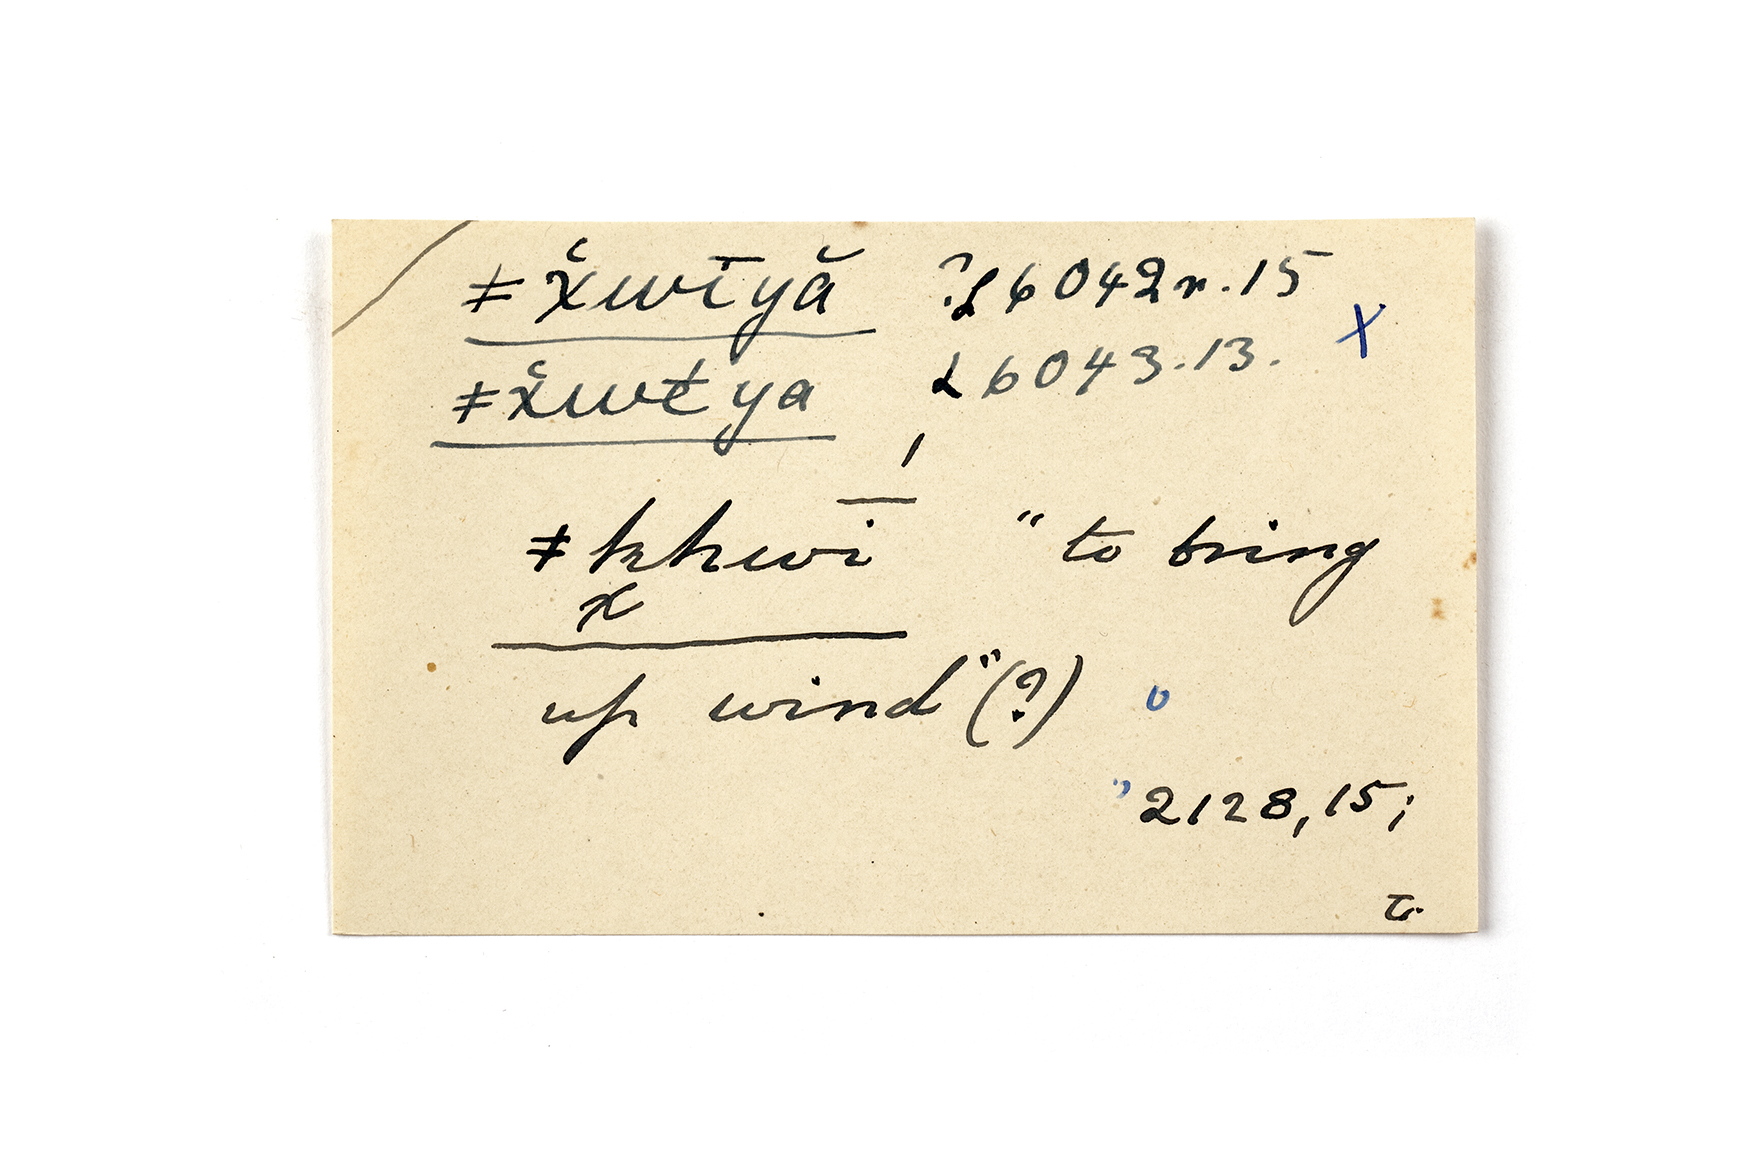 ǂx̌wīyă ?L6042r.15
ǂx̌wĭ̵ya L6043.13. X
ǂkhwi "to bring
x
up wind"(?) o
"2128,15;
Tr.